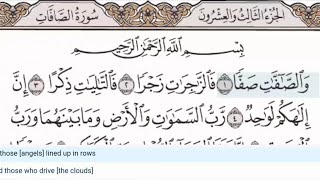 الجزء الثالث والعشرون
سورة الصافات
بِسْمِ ٱللَّهِ ٱلرَّحْمَٰنِ ٱلرَّحِيمِ
وَٱلصَّٰٓفَّٰتِ صَفًّا ١ فَٱلزَّٰجِرَٰتِ زَجْرًا ٢ فَٱلتَّٰلِيَٰتِ ذِكْرًا ٣ إِنَّ
إِلَٰهَكُمْ لَوَٰحِدٌ ٤ رَّبُّ ٱلسَّمَٰوَٰتِ وَٱلْأَرْضِ وَمَا بَيْنَهُمَا وَرَبُّ
those [angels] lined up in rows
d those who drive [the clouds]